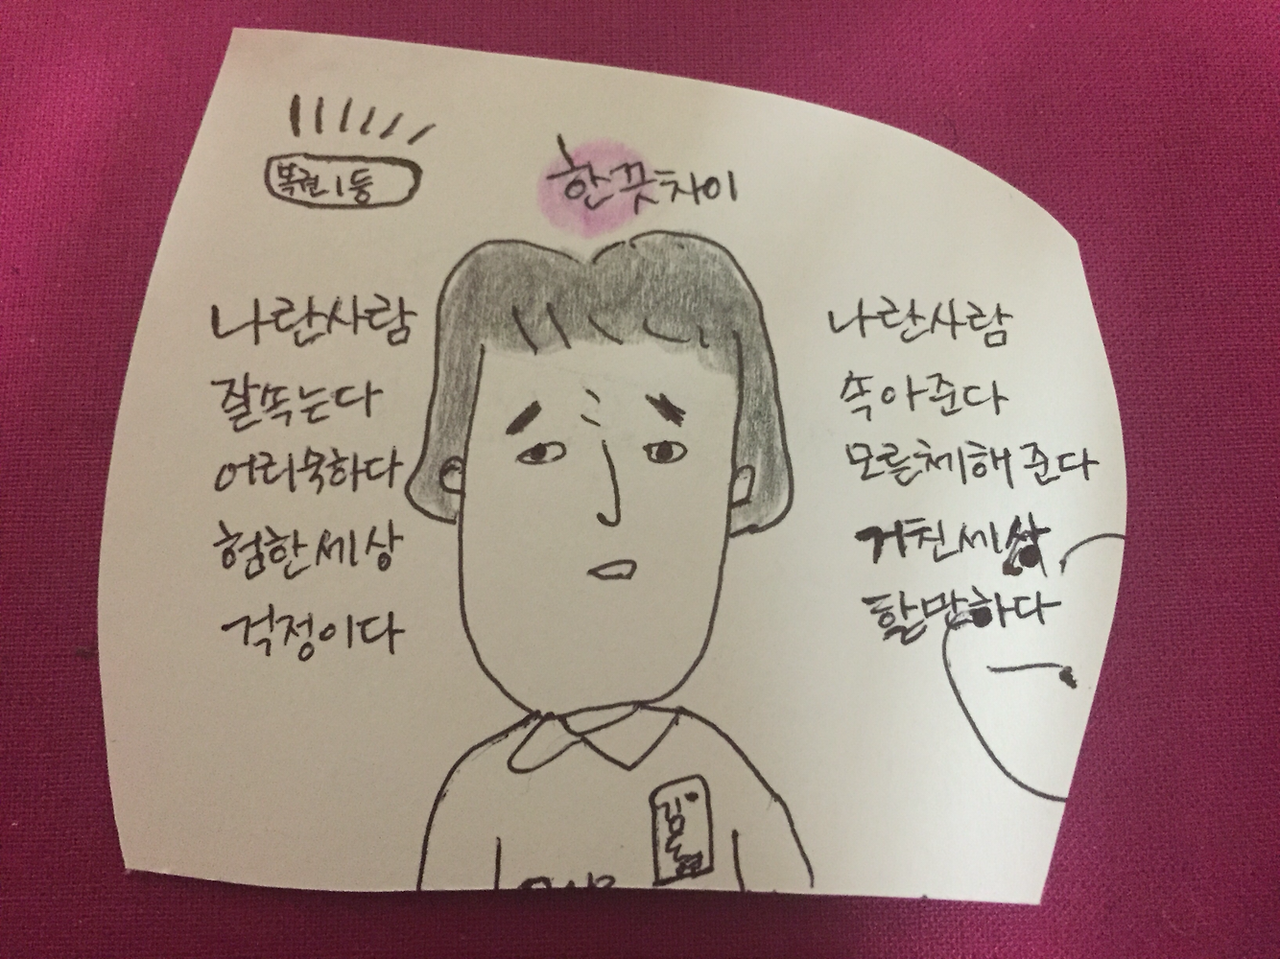 복권1등
한끗차이
나란사람
잘속는다
어리숙하다
험한세상
걱정이다
나란사람
속아준다
모른체해준다
거친세상
할만하다